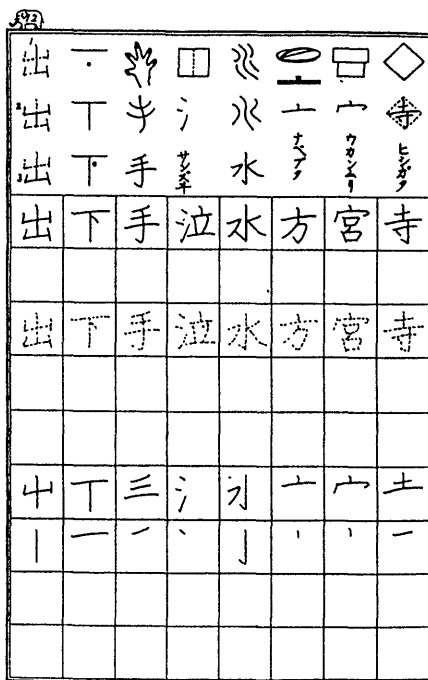 出
出 丅 氵 亠 宀 寺
出 手 サンズイ 水 ナベブタ ウカンムリ ヒシガタ
出 下 手 泣 水 方 宮 寺
出 下 手 泣 水 方 宮 寺
屮 丅 三 氵 亠 宀 土
丨 一 ㇒ 丶 亅 丶 丶 一